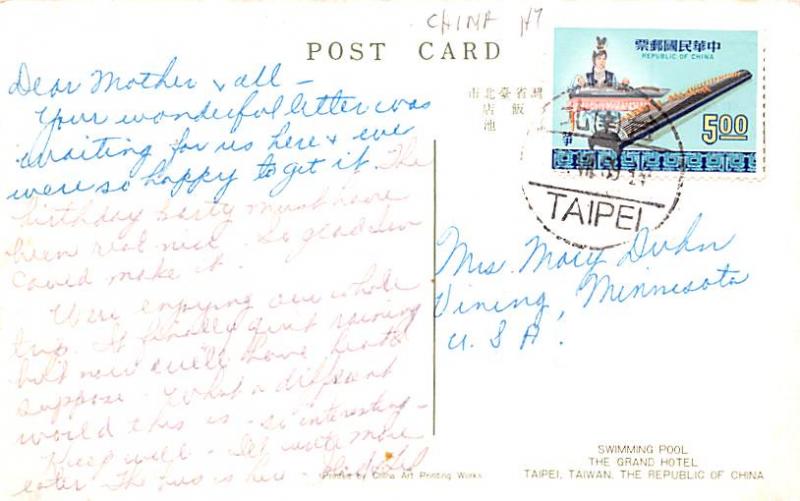 CHINA H7
POST CARD
Dear Mother & all —
Your wonderful letter was
waiting for us here & we
were so happy to get it. The
birthday party must have
been real nice. So glad
could make it.
We're enjoying our whole
trip. It finally quit raining
but now we'll have heat I
suppose. What a different
world this is - so interesting -
Keep well - Will write more
later. The bus is here -
Printed by China Art Printing Works
市北臺省灣
店飯
池
票郵國民華中
REPUBLIC OF CHINA
5.00
TAIPEI
Mrs. Mary Duhn
Vining, Minnesota
U.S.A.
SWIMMING POOL
THE GRAND HOTEL
TAIPEI, TAIWAN, THE REPUBLIC OF CHINA